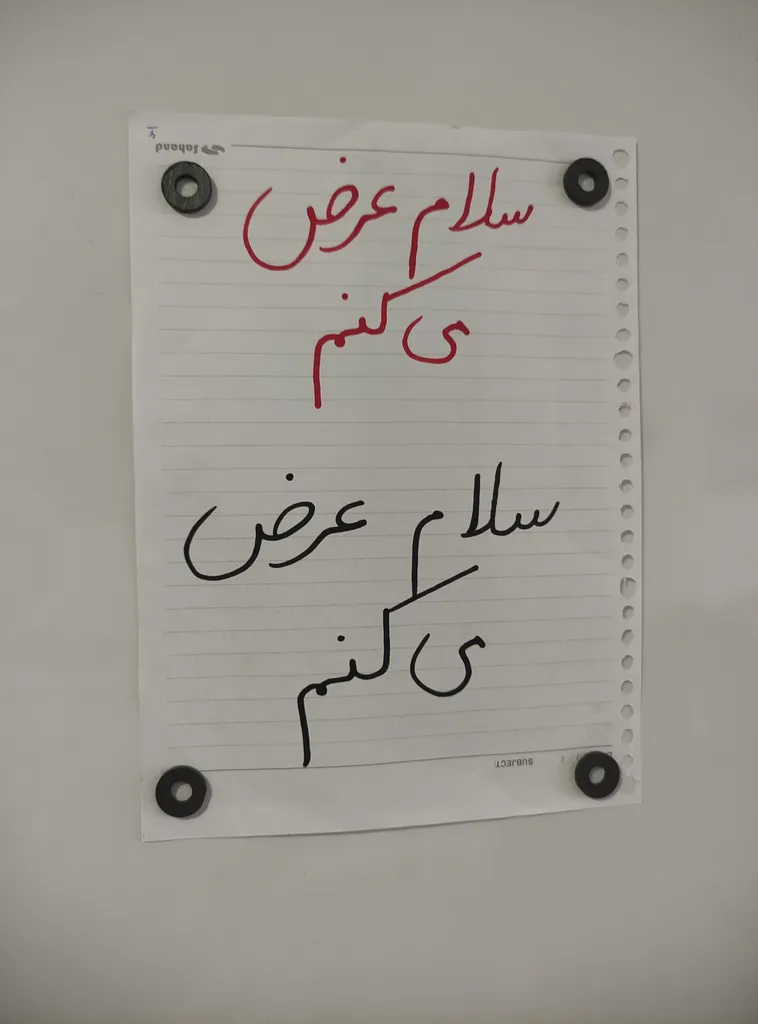 sahand
سلام عرض
ی کنم
سلام عرض
ی کنم
SUBJECT: